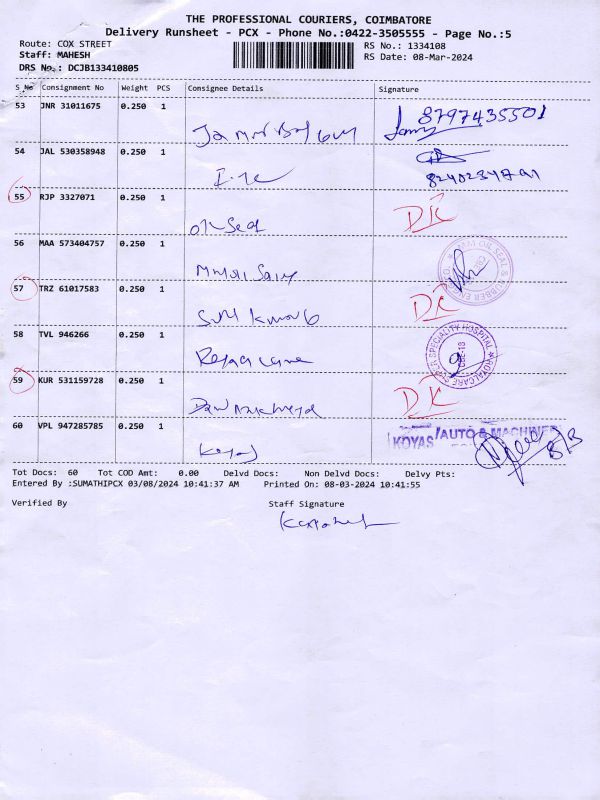 THE PROFESSIONAL COURIERS, COIMBATORE
Delivery Runsheet - PCX - Phone No.:0422-3505555 - Page No.:5
Route: COX STREET
RS No.: 1334108
Staff: MAHESH
RS Date: 08-Mar-2024
DRS No.: DCJB133410805
S_No Consignment No Weight PCS Consignee Details Signature
53 JNR 31011675 0.250 1
8797435501
54 JAL 530358948 0.250 1
55 RJP 3327071 0.250 1
DK
56 MAA 573404757 0.250 1
57 TRZ 61017583 0.250 1
DK
58 TVL 946266 0.250 1
ROYALCARE SUPER SPECIALITY HOSPITAL
59 KUR 531159728 0.250 1
DK
60 VPL 947285785 0.250 1
KOYAS AUTO & MACHINER
8/3
Tot Docs: 60 Tot COD Amt: 0.00 Delvd Docs: Non Delvd Docs: Delvy Pts:
Entered By :SUMATHIPCX 03/08/2024 10:41:37 AM Printed On: 08-03-2024 10:41:55
Verified By Staff Signature